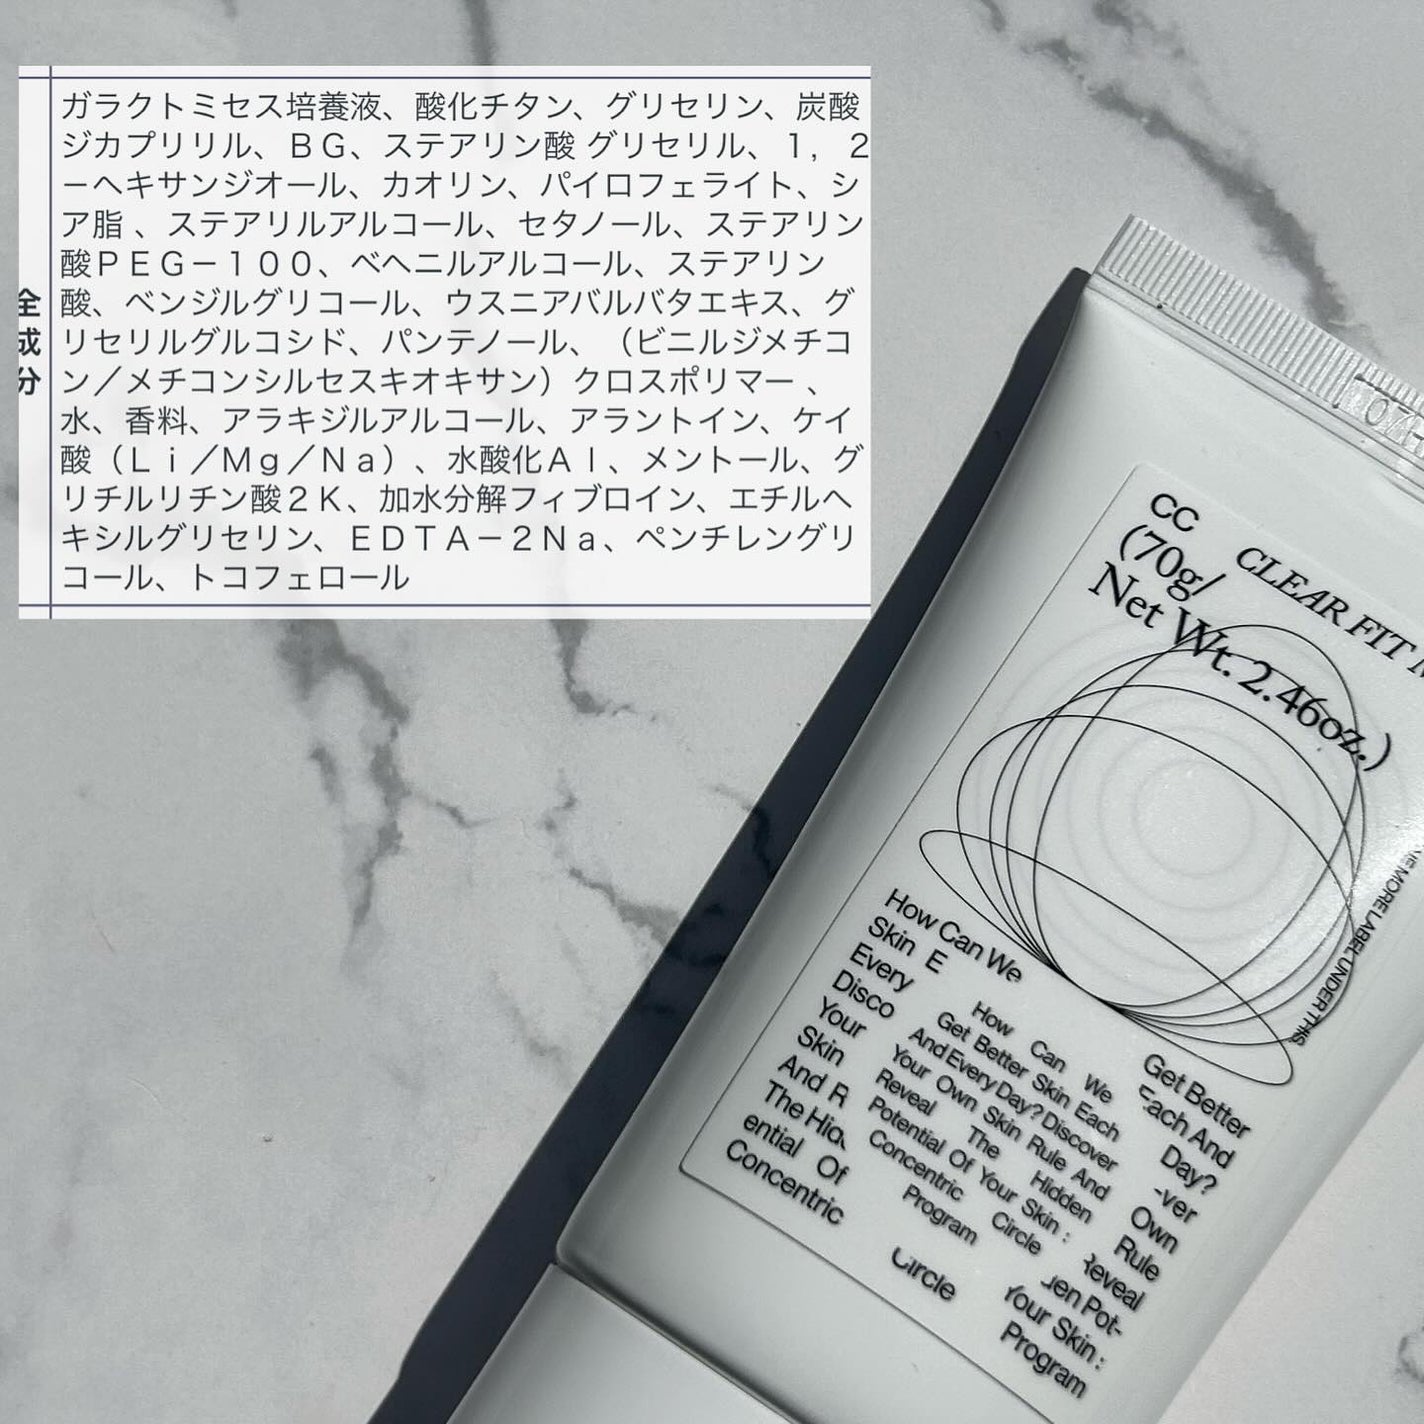 ガラクトミセス培養液、酸化チタン、グリセリン、炭酸
ジカプリリル、ＢＧ、ステアリン酸 グリセリル、１，２
－ヘキサンジオール、カオリン、パイロフェライト、シ
ア脂 、ステアリルアルコール、セタノール、ステアリン
酸ＰＥＧ－１００、ベヘニルアルコール、ステアリン
酸、ベンジルグリコール、ウスニアバルバタエキス、グ
リセリルグルコシド、パンテノール、（ビニルジメチコ
ン／メチコンシルセスキオキサン）クロスポリマー 、
水、香料、アラキジルアルコール、アラントイン、ケイ
酸（Ｌｉ／Ｍｇ／Ｎａ）、水酸化Ａｌ、メントール、グ
リチルリチン酸２Ｋ、加水分解フィブロイン、エチルヘ
キシルグリセリン、ＥＤＴＡ－２Ｎａ、ペンチレングリ
コール、トコフェロール
全成分
CC
(70g/
Net Wt. 2.46oz.)
CLEAR FIT
MORE LABEL UNDER THIS
How Can We
Skin
Every
Your
Skin
And
The
ential Of
Concentric
Circle
How Can We
Get Better Skin Each
And Every Day? Discover
Your Own Skin Rule And
Reveal The Hidden
Potential Of Your Skin :
Concentric Circle
Program
Get Better
Each And
Day?
Own
Rule
Reveal
Pot-
Your Skin :
Program